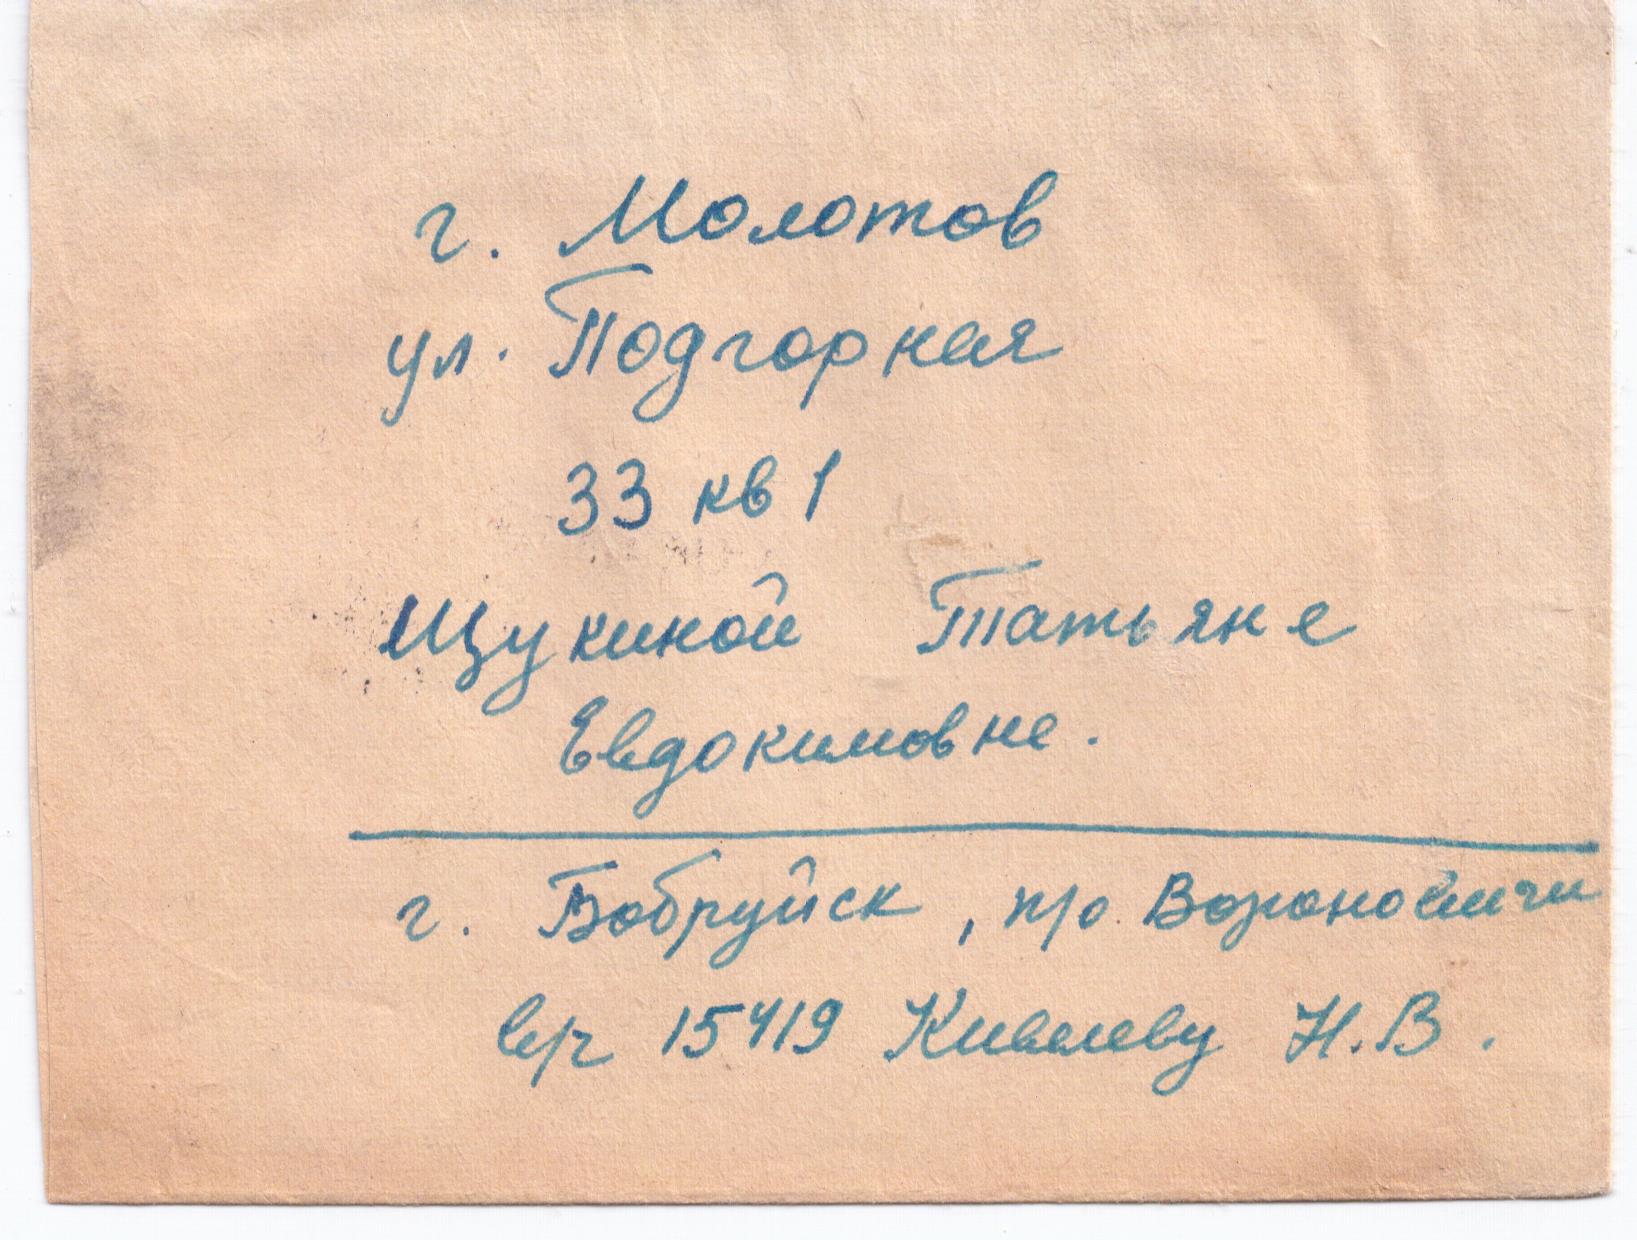 г. Молотов
ул. Подгорная
33 кв 1
Щукиной Татьяне
Евдокимовне.
г. Бобруйск, п/о
в/ч 15419 Кивелеву Н.В.